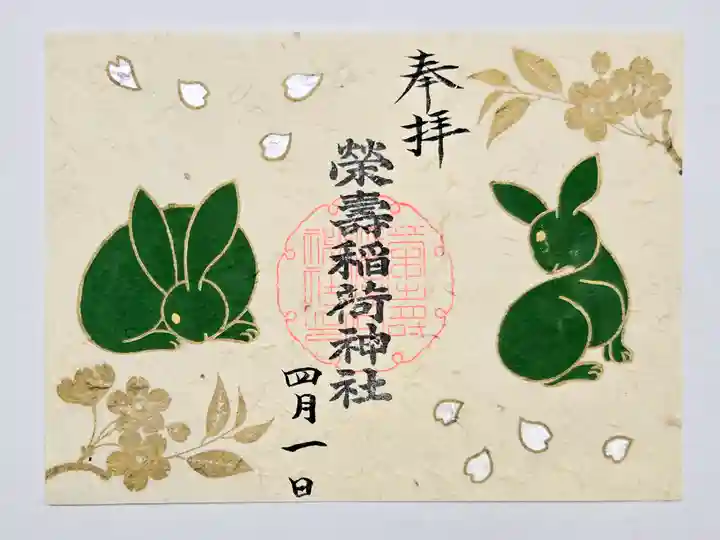 奉拝
榮壽稲荷神社
四月一日